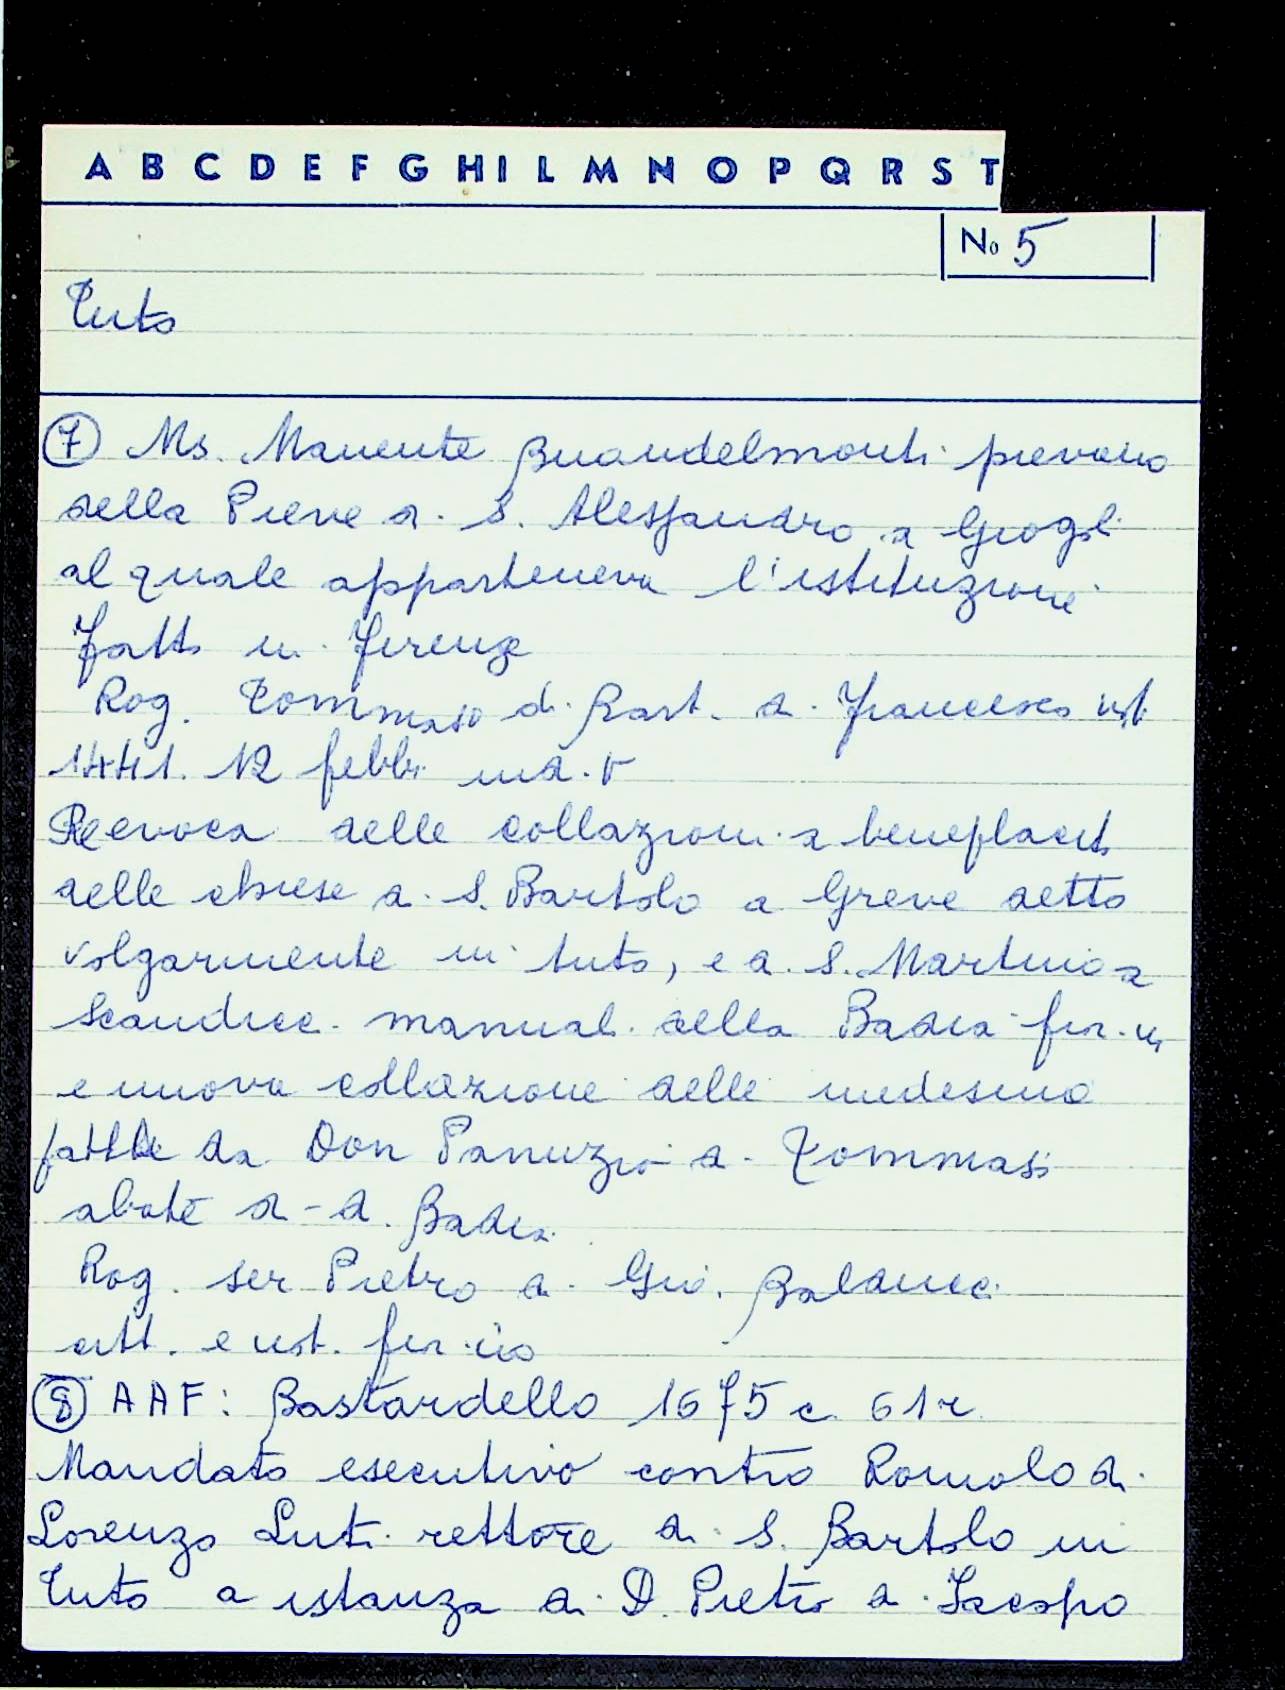 A B C D E F G H I L M N O P Q R S T
No 5
Tuto
7 Ms. Manente Buondelmonti pievano
della Pieve di S. Alessandro a Giogoli
al quale apparteneva l'istituzione
fatto in Firenze
Rog. Tommaso di Bart. di Francesco
1441. 12 febbr. ind. V
Reevoca delle collazioni a beneplacito
delle chiese di S. Bartolo a Greve detto
volgarmente in tuto, e di S. Martino a
Scandicci manuali della Badia fior.na
e nuova collazione delle medesime
fatte da Don Panuzio di Tommaso
abate di d. Badia
Rog. ser Pietro di Gio. Balducci
citt. e not. fior.no
8 AAF: Bastardello 1675 c. 61r
Mandato esecutivo contro Romolo di
Lorenzo Luti rettore di S. Bartolo in
Tuto a istanza di D. Pietro di Iacopo